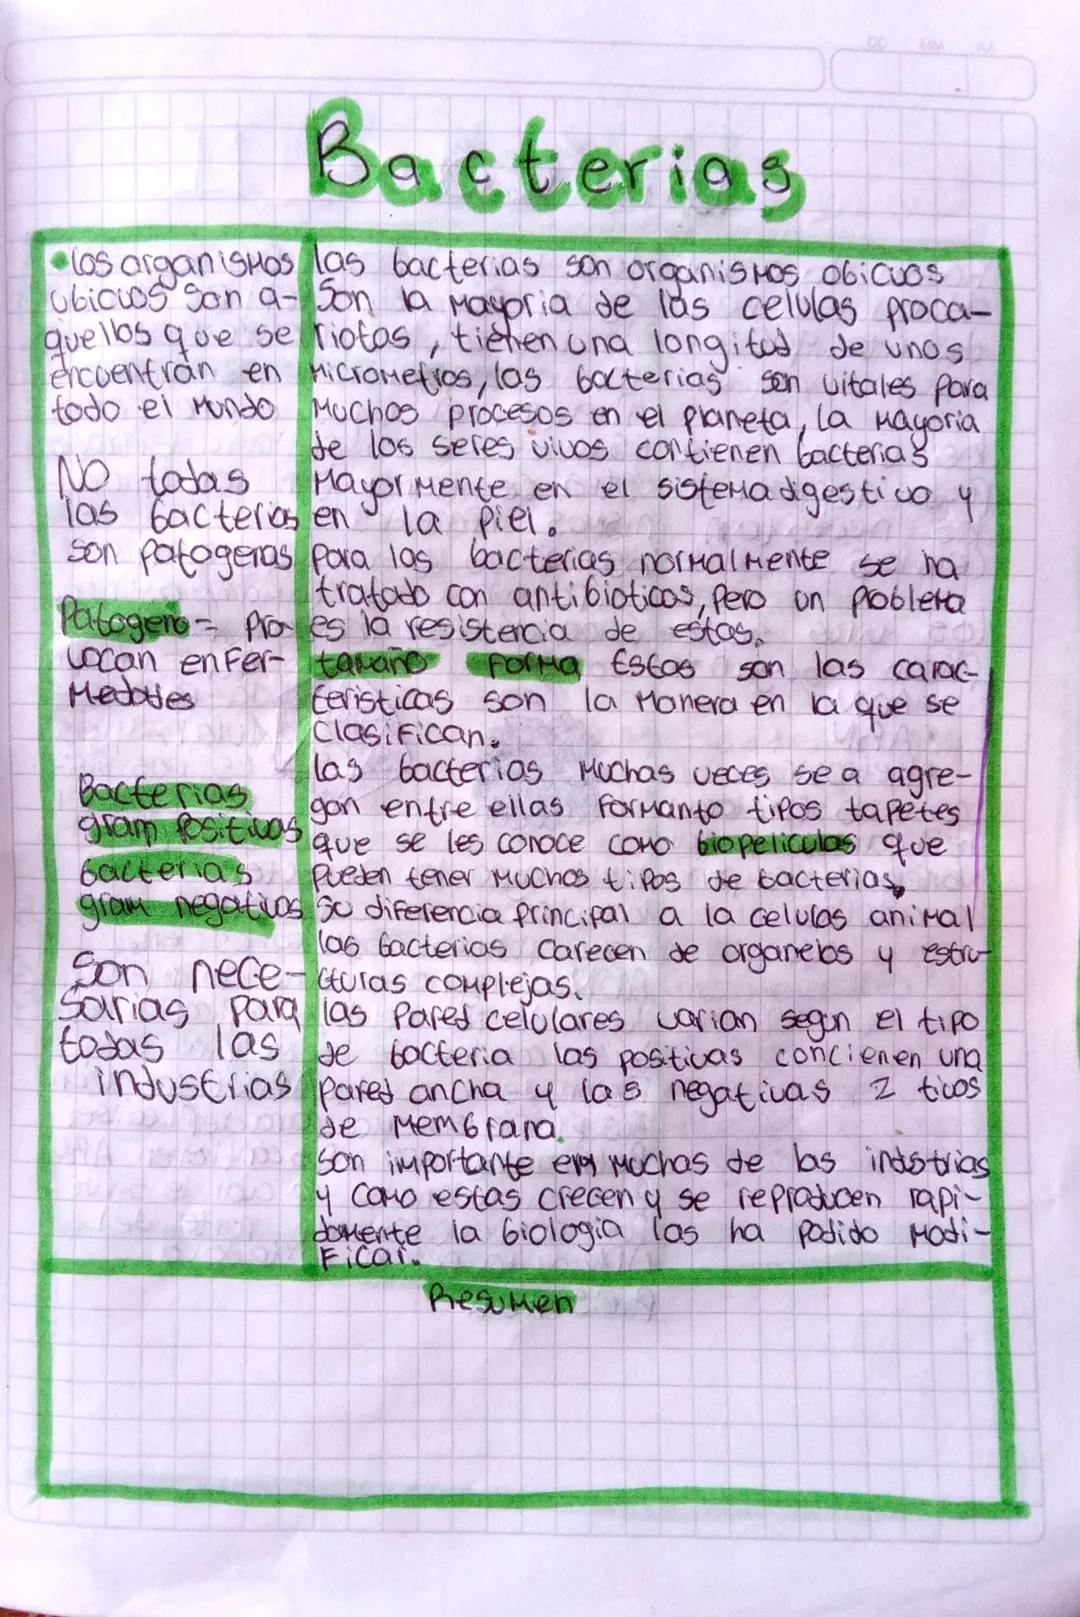 Bacterias
•los organismos
ubicuos son a-
quellos que se
encuentran en
todo el mundo
NO todas
las bacterias
son patogenas
Patogeno = pro
vocan enfer-
medades
Bacterias
gram positivas
bacterias
gram negativas
Son nece-
sarias para
todas las
industrias
las bacterias son organismos obicuos
Son la mayoria de las celulas proca-
riotas, tienen una longitud de unos
micrometros, las bacterias son vitales para
muchos procesos en el planeta, la mayoria
de los seres vivos contienen bacterias
mayormente en el sistema digestivo y
en la piel.
para las bacterias normalmente se ha
tratado con antibioticos, pero un problema
es la resistencia de estas.
tamaño forma Estas son las carac-
teristicas son la manera en la que se
clasifican.
las bacterias muchas veces se a agre-
gan entre ellas formanto tipos tapetes
que se les conoce como biopeliculas que
pueden tener muchos tipos de bacterias,
su diferencia principal a la celulas animal
las bacterias carecen de organelos y estru-
cturas complejas.
las pared celulares varian segun el tipo
de bacteria las positivas concienen una
pared ancha y las negativas 2 ticos
de membrana.
son importante en muchas de las indstrias
y como estas crecen y se reproducen rapi-
damente la biologia las ha podido modi-
ficar.
Resumen